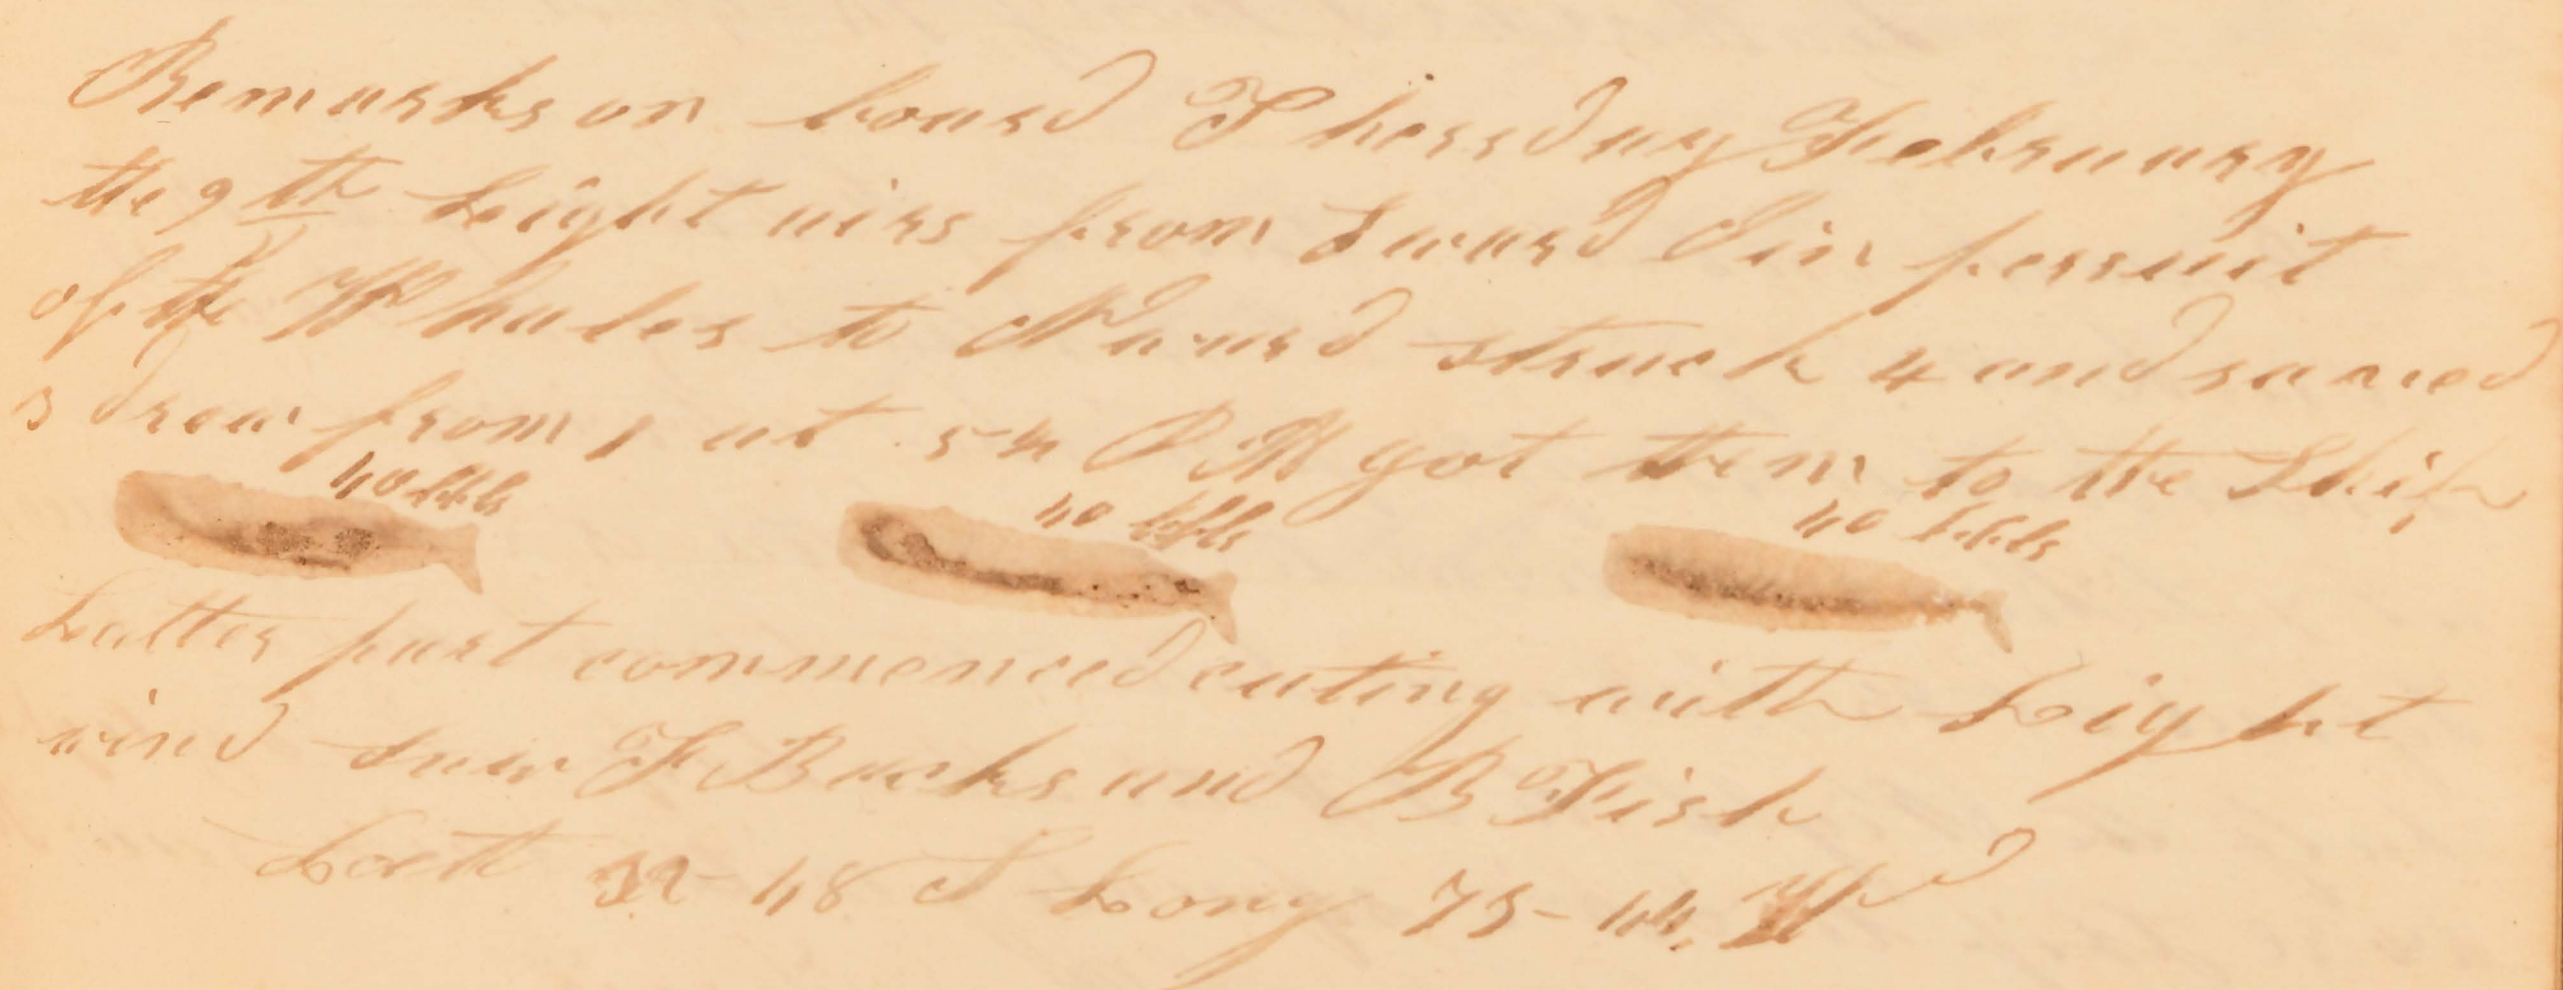 Remarks on board Thorsday February
the 9th Light airs from Sward in porsuit
of the Whales to Nward struck 4 and saved
3 drew from 1 at 5 PM got them to the Ship
40 bbls 40 bbls 40 bbls
Latter part commenced cuting with Light
wind saw F Backs and B Fish
Latt 32-48 S Long 75-44 W